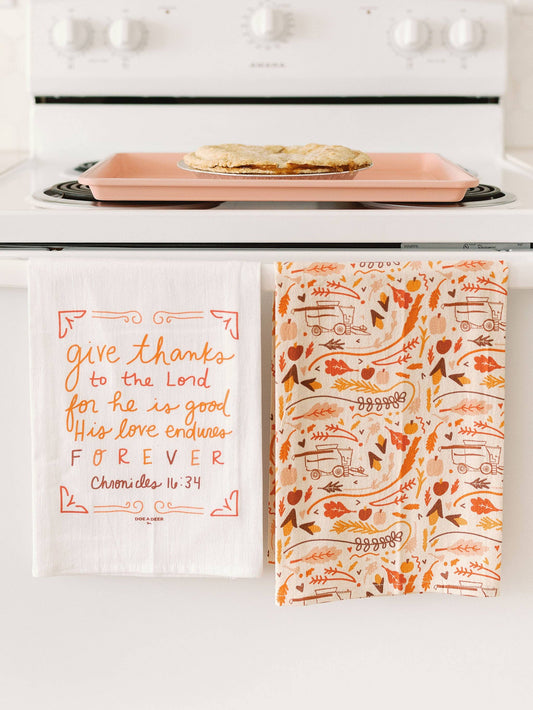 AMANA
give thanks
to the Lord
for he is good
His love endures
FOREVER
Chronicles 16:34
DOE A DEER